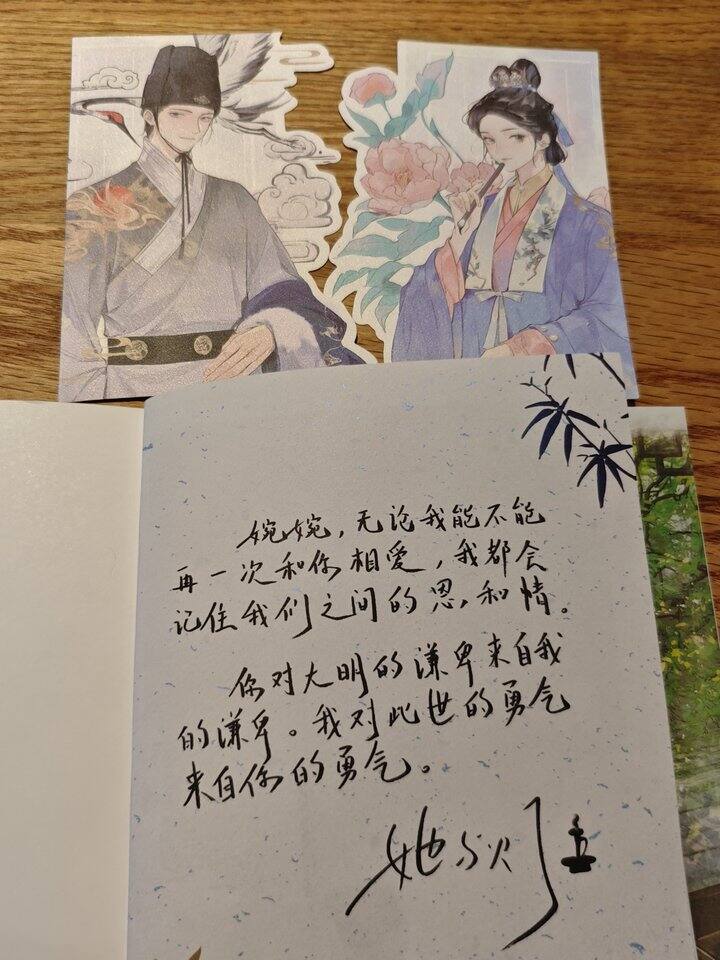 婉婉，无论我能不能
再一次和你相爱，我都会
记住我们之间的恩，和情。
你对大明的谦卑来自我
的谦卑。我对此世的勇气
来自你的勇气。
她与灯